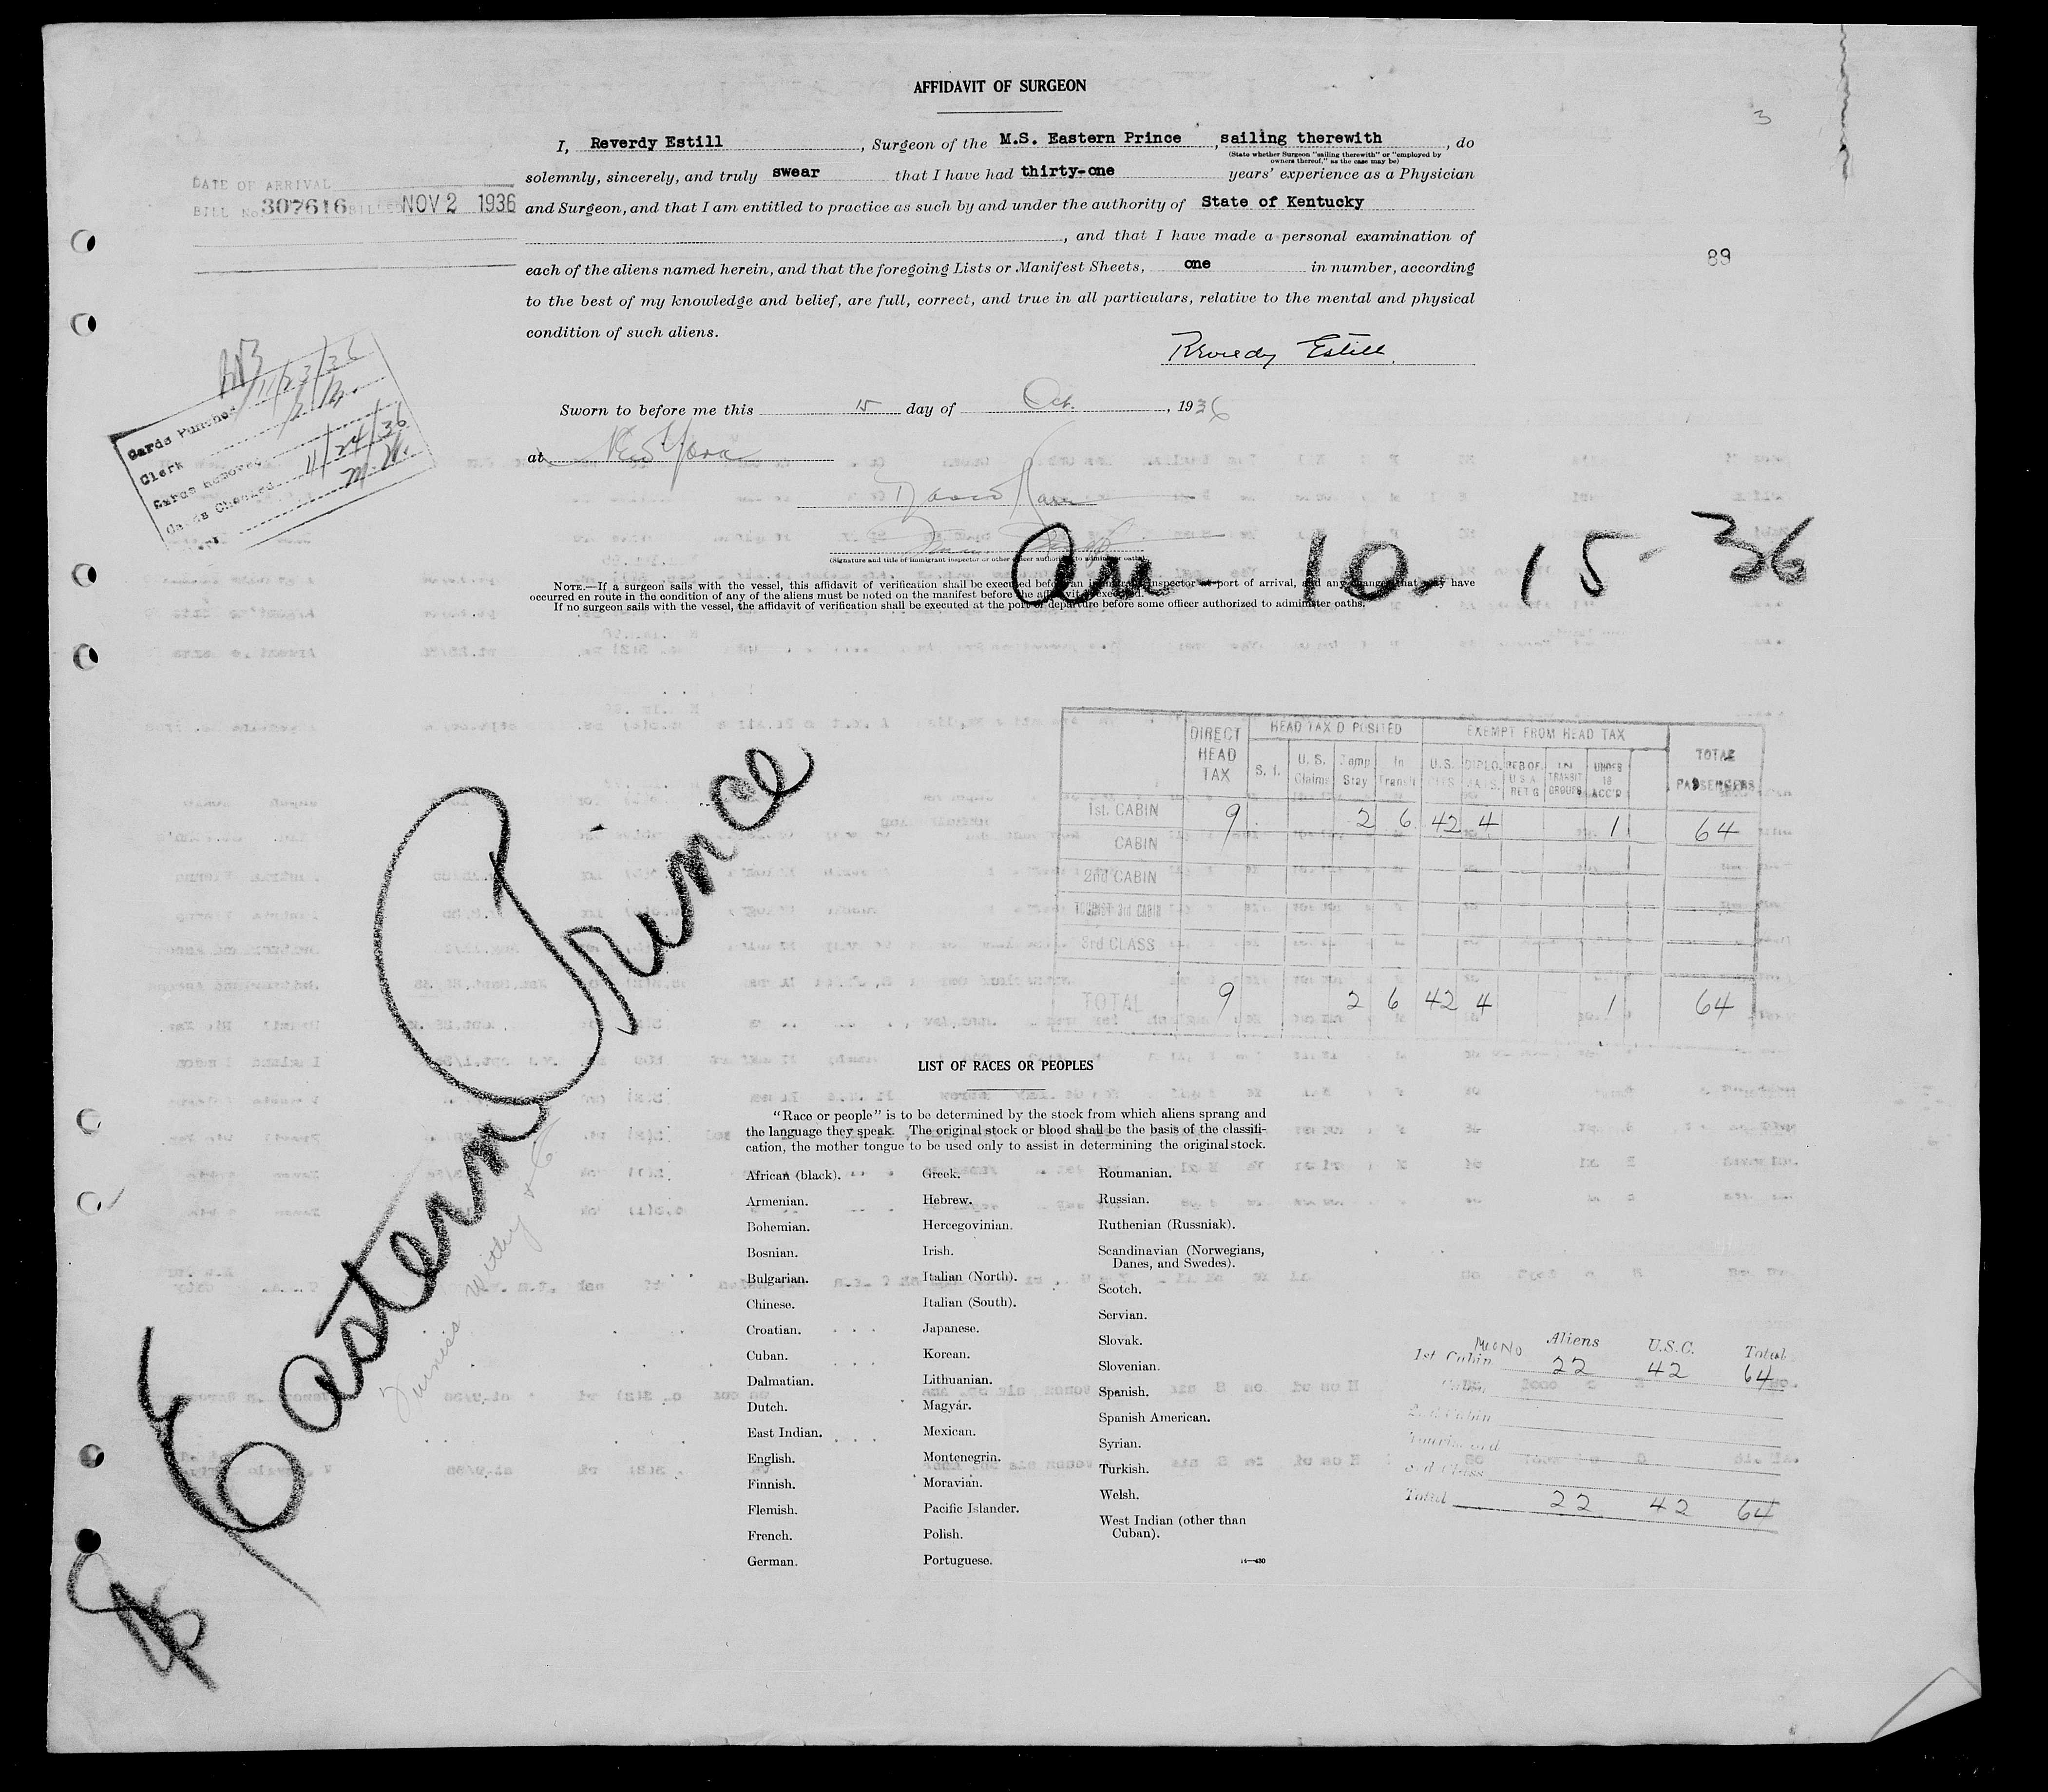 AFFIDAVIT OF SURGEON
3
I, Reverdy Estill, Surgeon of the M.S. Eastern Prince, sailing therewith, do
(State whether Surgeon "sailing therewith" or "employed by
owners thereof," as the case may be)
solemnly, sincerely, and truly swear that I have had thirty-one years' experience as a Physician
DATE OF ARRIVAL
BILL No. 307616 BILLED NOV 2 1936
and Surgeon, and that I am entitled to practice as such by and under the authority of State of Kentucky
, and that I have made a personal examination of
each of the aliens named herein, and that the foregoing Lists or Manifest Sheets, one in number, according
88
to the best of my knowledge and belief, are full, correct, and true in all particulars, relative to the mental and physical
condition of such aliens.
Reverdy Estill.
Sworn to before me this 15 day of Oct., 1936
at New York
Cards Punched 11/23/36
Clerk
Cards Removed
Cards Checked 11/24/36
Clerk
(Signature and title of immigrant inspector or other officer authorized to administer oaths)
Arr 10-15-36
NOTE.—If a surgeon sails with the vessel, this affidavit of verification shall be executed before an immigrant inspector at port of arrival, and any changes that may have
occurred en route in the condition of any of the aliens must be noted on the manifest before the affidavit is executed.
If no surgeon sails with the vessel, the affidavit of verification shall be executed at the port of departure before some officer authorized to administer oaths.
DIRECT HEAD TAX HEAD TAX D POSITED EXEMPT FROM HEAD TAX TOTAL PASSENGERS
S. I. U. S. Claims Temp Stay In Transit U.S. CITS. DIPLO-MATS. RES OF U S A RET G IN TRANSIT GROUPS UNDER 16 ACC'D
1st. CABIN 9 2 6 42 4 1 64
CABIN
2nd CABIN
TOURIST 3rd CABIN
3rd CLASS
TOTAL 9 2 6 42 4 1 64
Eastern Prince
Furness Withy & C
LIST OF RACES OR PEOPLES
"Race or people" is to be determined by the stock from which aliens sprang and
the language they speak. The original stock or blood shall be the basis of the classifi-
cation, the mother tongue to be used only to assist in determining the original stock.
African (black).
Armenian.
Bohemian.
Bosnian.
Bulgarian.
Chinese.
Croatian.
Cuban.
Dalmatian.
Dutch.
East Indian.
English.
Finnish.
Flemish.
French.
German.
Greek.
Hebrew.
Hercegovinian.
Irish.
Italian (North).
Italian (South).
Japanese.
Korean.
Lithuanian.
Magyar.
Mexican.
Montenegrin.
Moravian.
Pacific Islander.
Polish.
Portuguese.
Roumanian.
Russian.
Ruthenian (Russniak).
Scandinavian (Norwegians,
Danes, and Swedes).
Scotch.
Servian.
Slovak.
Slovenian.
Spanish.
Spanish American.
Syrian.
Turkish.
Welsh.
West Indian (other than
Cuban).
14—430
Aliens U.S.C. Total
1st Cabin 22 42 64
Cabin
2nd Cabin
Tourist 3rd
3rd Class
Total 22 42 64